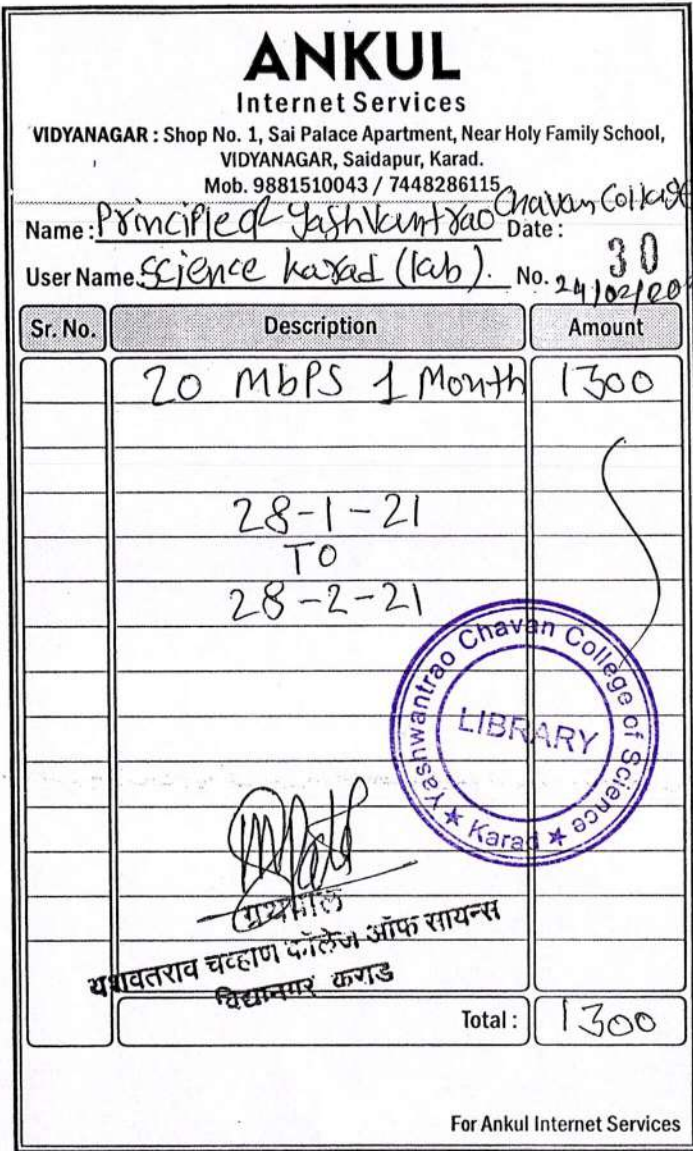 ANKUL
Internet Services
VIDYANAGAR : Shop No. 1, Sai Palace Apartment, Near Holy Family School,
VIDYANAGAR, Saidapur, Karad.
Mob. 9881510043 / 7448286115
Name : Principle of Yashvantrao Chavan College
Date :
User Name Science karad (lab). No. 30
24/02/202
Sr. No. Description Amount
20 MbPS 1 Month 1300
28-1-21
TO
28-2-21
Yashwantrao Chavan College of Science
LIBRARY
★ Karad ★
ग्रंथपाल
यशवंतराव चव्हाण कॉलेज ऑफ सायन्स
विद्यानगर कराड
Total : 1300
For Ankul Internet Services